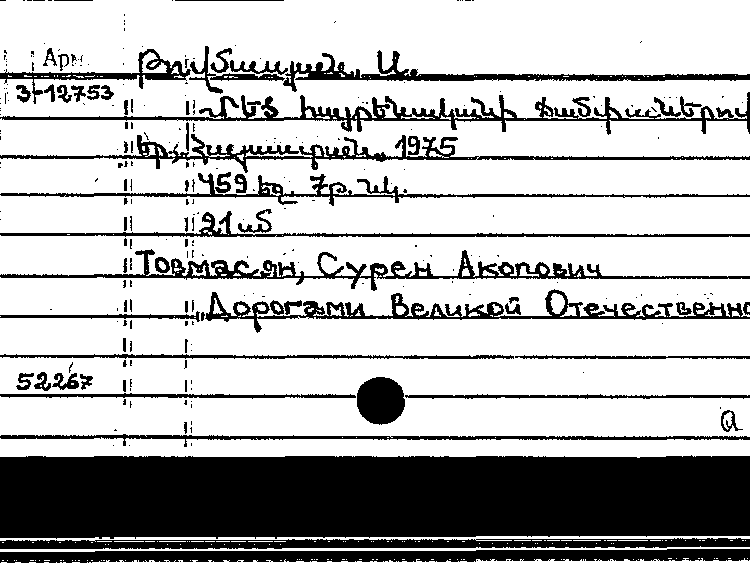 Арм
Թովմասյան, Ս.
3-12753
Մեծ հայրենականի ճանապարհներով
Եր., Հայաստան, 1975
459 էջ. 7թ. նկ.
21 սմ
Товмасян, Сурен Акопович
Дорогами Великой Отечественно
52267
а